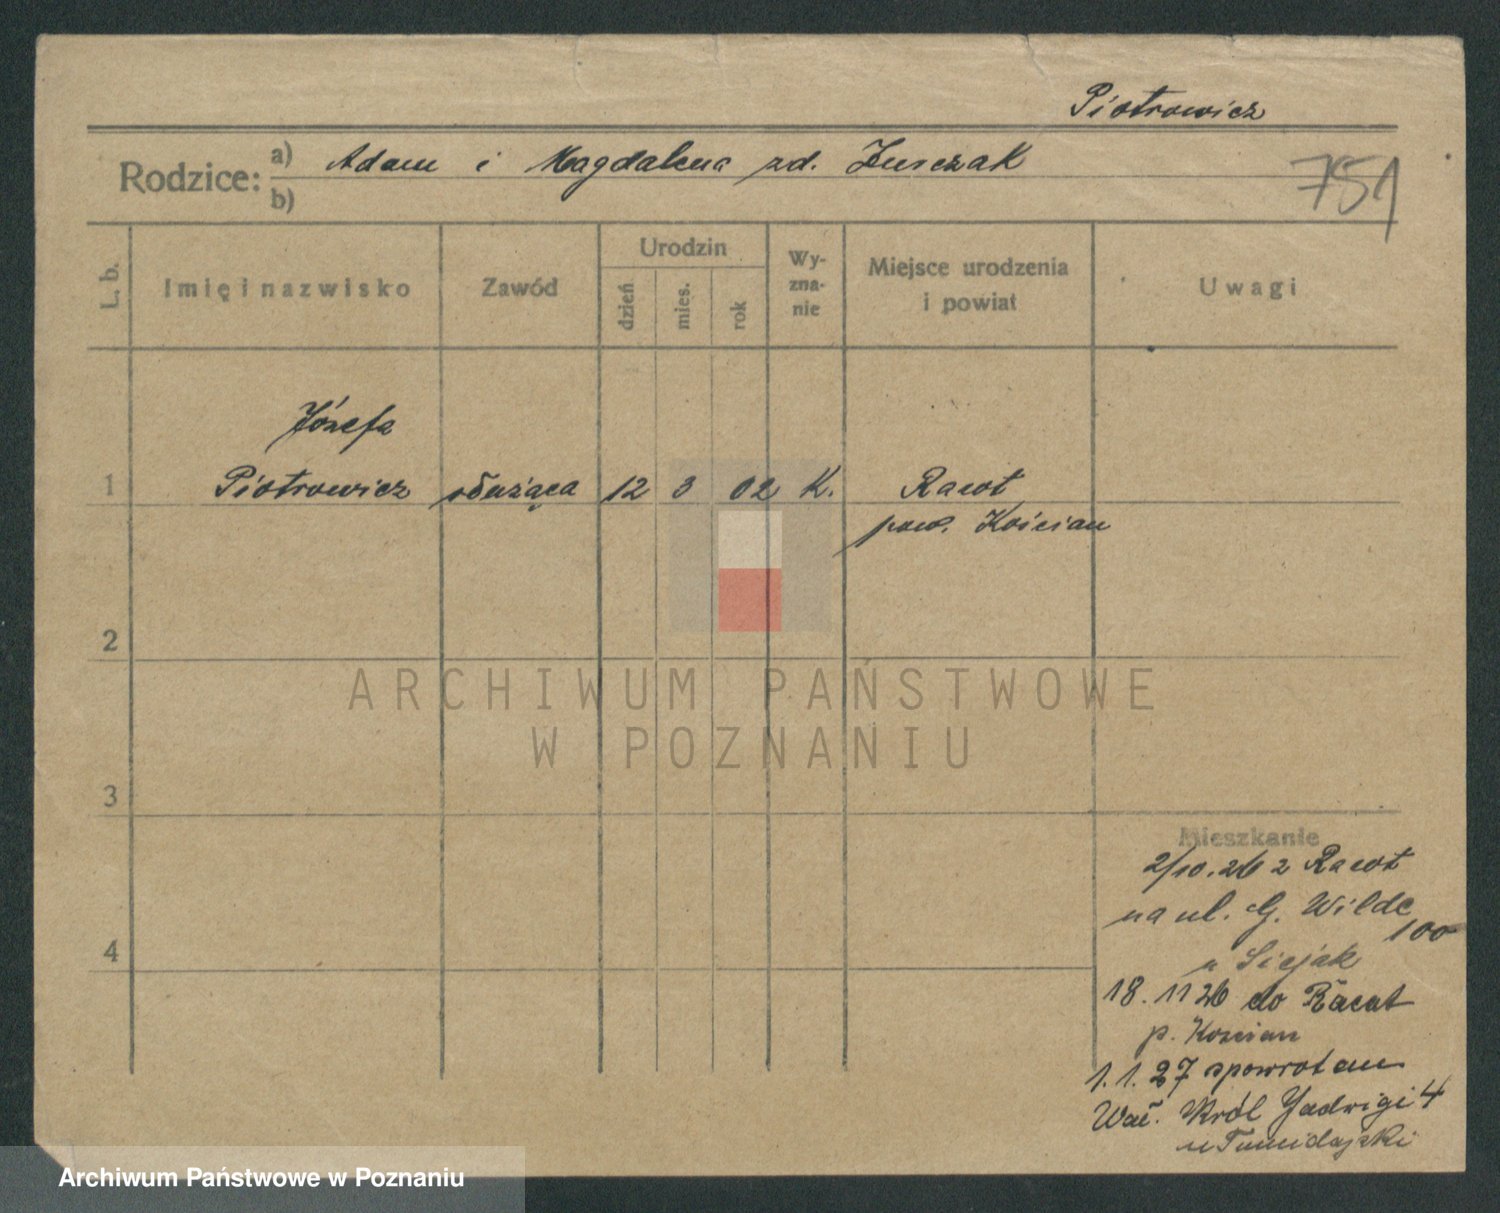 Piotrowicz
Rodzice:
a) Adam i Magdalena zd. Żurczak
b)
751
L. b.
Imię i nazwisko
Zawód
Urodzin
dzień
mies.
rok
Wy-
zna-
nie
Miejsce urodzenia
i powiat
Uwagi
Józefa
1 Piotrowicz służąca 12 3 02 K. Racot
pow. Kościan
2
3
4
Mieszkanie
2/10.26 z Racot
na ul. G. Wilde
100
u
18.11 26 do Racot
p. Kościan
1.1.27 spowrotem
Wał. Król Jadwigi 4
u
ARCHIWUM PAŃSTWOWE
W POZNANIU
Archiwum Państwowe w Poznaniu